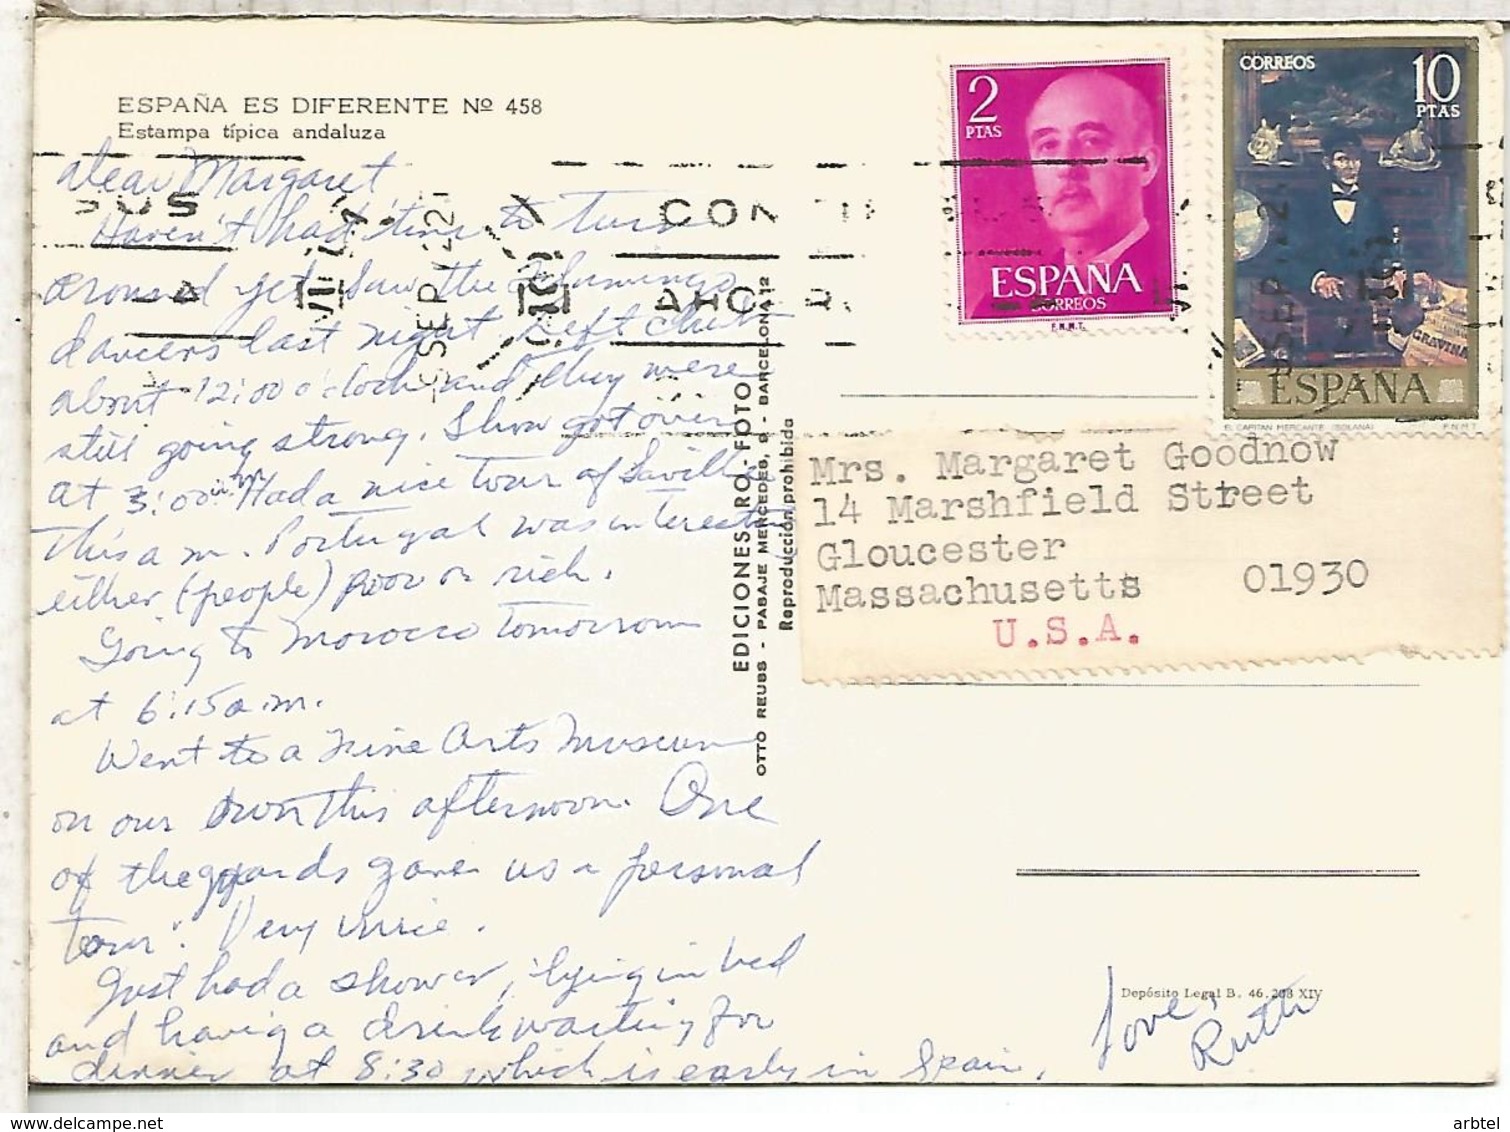 ESPAÑA ES DIFERENTE Nº 458
Estampa típica andaluza
Dear Margaret
Haven't had time to turn
around yet. Saw the Flamingo
dancers last night. Left club
about 12:00 o'clock and they were
still going strong. Show got over
at 3:00 a.m. Had a nice tour of Saville
This a.m. Portugal was interesting
either (people) poor or rich.
Going to Morocco tomorrow
at 6:15 a.m.
Went to a Fine Arts Museum
on our own this afternoon. One
of the guards gave us a personal
tour. Very nice.
Just had a shower, lying in bed
and having a drink waiting for
dinner at 8:30 which is early in Spain.
Love,
Ruth
EDICIONES RO-FOTO
OTTO REUSS - PASAJE MERCEDES, 9 - BARCELONA 12
Reproducción prohibida
2
PTAS
ESPAÑA
CORREOS
F.N.M.T.
CORREOS
10
PTAS
GRAVINA
ESPAÑA
EL CAPITAN MERCANTE (SOLANA) F.N.M.T.
SEP
SEP
Mrs. Margaret Goodnow
14 Marshfield Street
Gloucester
Massachusetts 01930
U.S.A.
Depósito Legal B. 46.208 XIV
arbtel